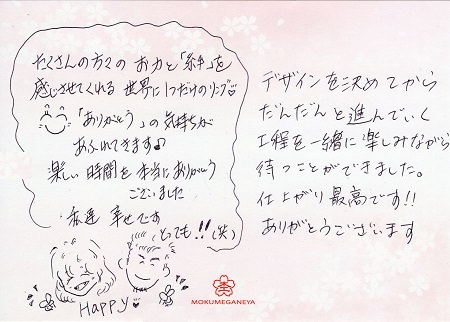 たくさんの方々のお力と「絆」を
感じさせてくれる世界に1つだけのリング♡
「ありがとう」の気持ちが
あふれてきます♪
楽しい時間を本当にありがとう
ございました
私達 幸せです
とっても!!(笑)
Happy♡
デザインを決めてから
だんだんと進んでいく
工程を一緒に楽しみながら
待つことができました。
仕上がり最高です!!
ありがとうございます
MOKUMEGANEYA